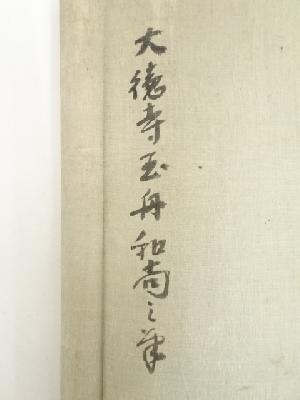 大徳寺玉舟和尚之筆